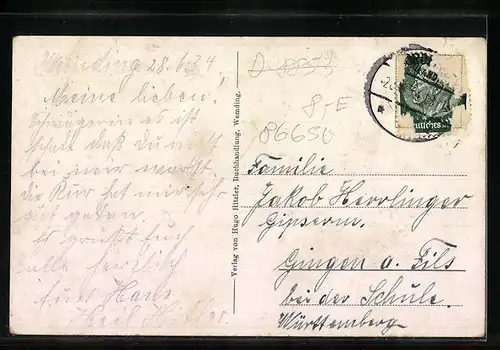 Wemding 28.6.34
Meine lieben.
Schwägerin es ist
schad daß du nicht
bei mir warst.
die Kur hat mir sehr
gut getan.
Es grüßt Euch
alle herzlich
Euer Hans
Heil Hitler.
Verlag von Hugo Hitzler, Buchhandlung, Wemding.
D-8853
8-E
86650
Deutsches
Familie
Jakob Herrlinger
Gipserm.
Gingen a. Fils
bei der Schule.
Württemberg